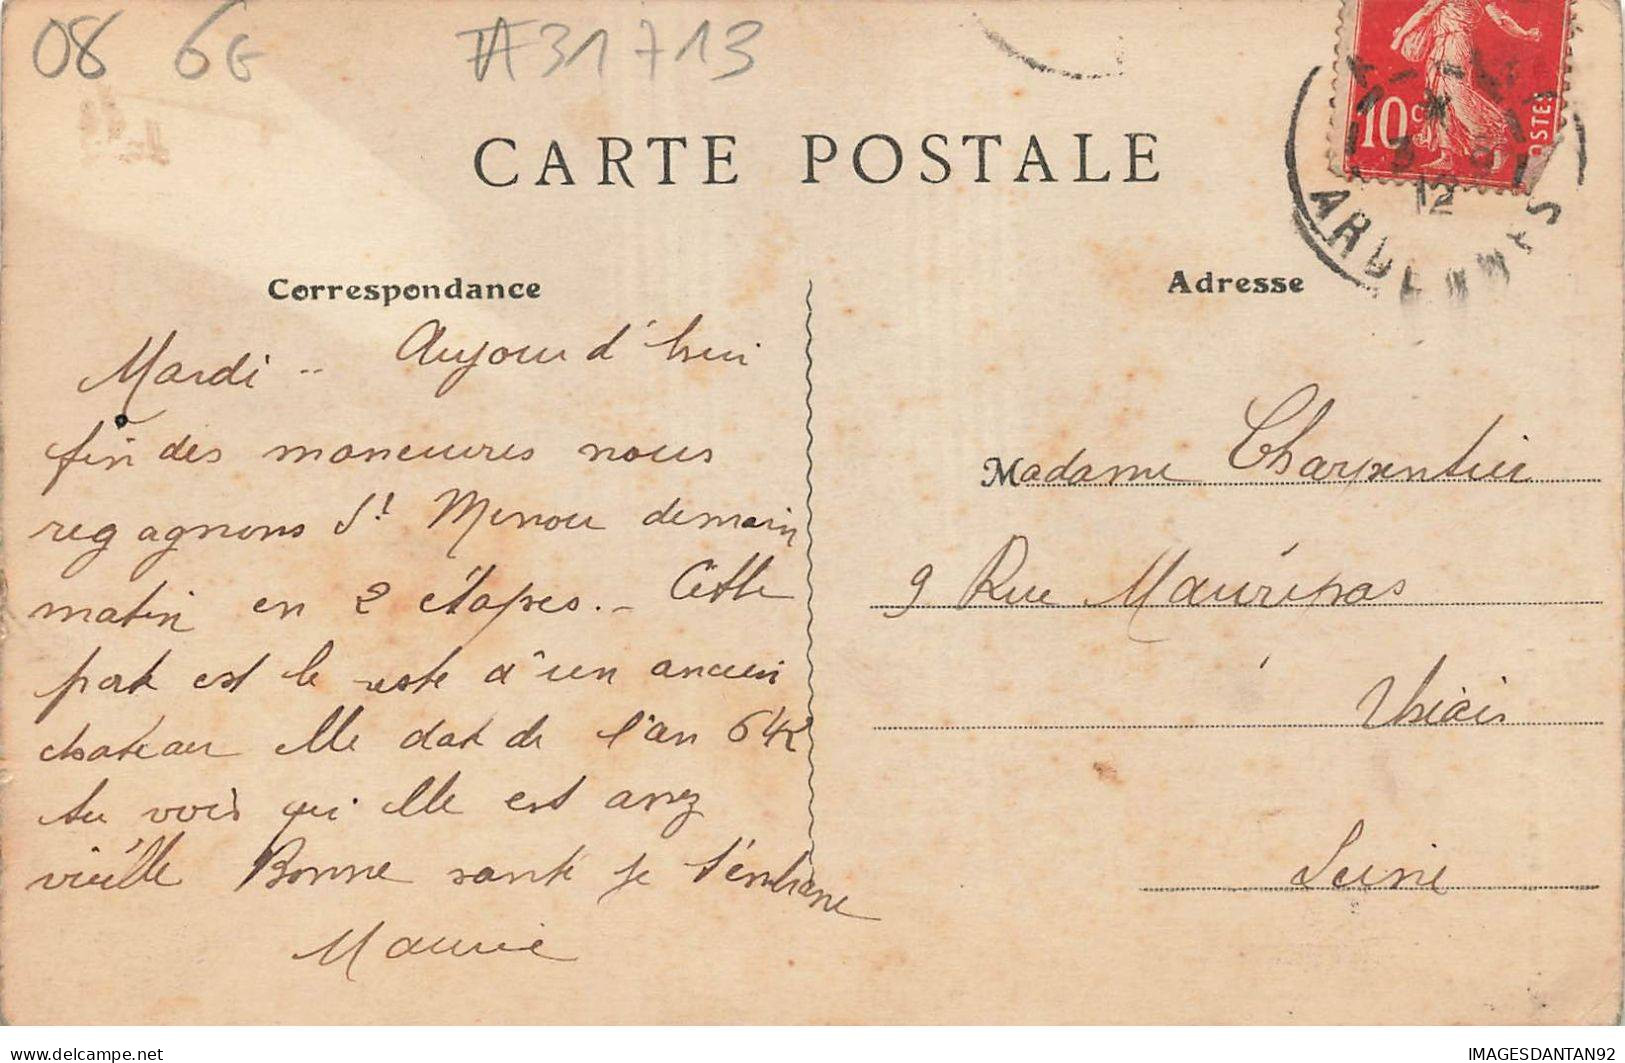 08 6G #31713
CARTE POSTALE
10c
POSTES
3 - 9
12
ARDENNES
Correspondance
Adresse
Mardi .. Aujourd'hui
fin des maneuvres nous
regagnons St Menou demain
matin en 2 étapes. - Cette
port est le reste d'un ancien
chateau elle dat de l'an 642
tu vois qui elle est assez
vieille Bonne santé je t'embrasse
Maurice
Madame Charpentier
9 Rue Maurépas
Thiais
Seine
delcampe.net
IMAGESDANTAN92